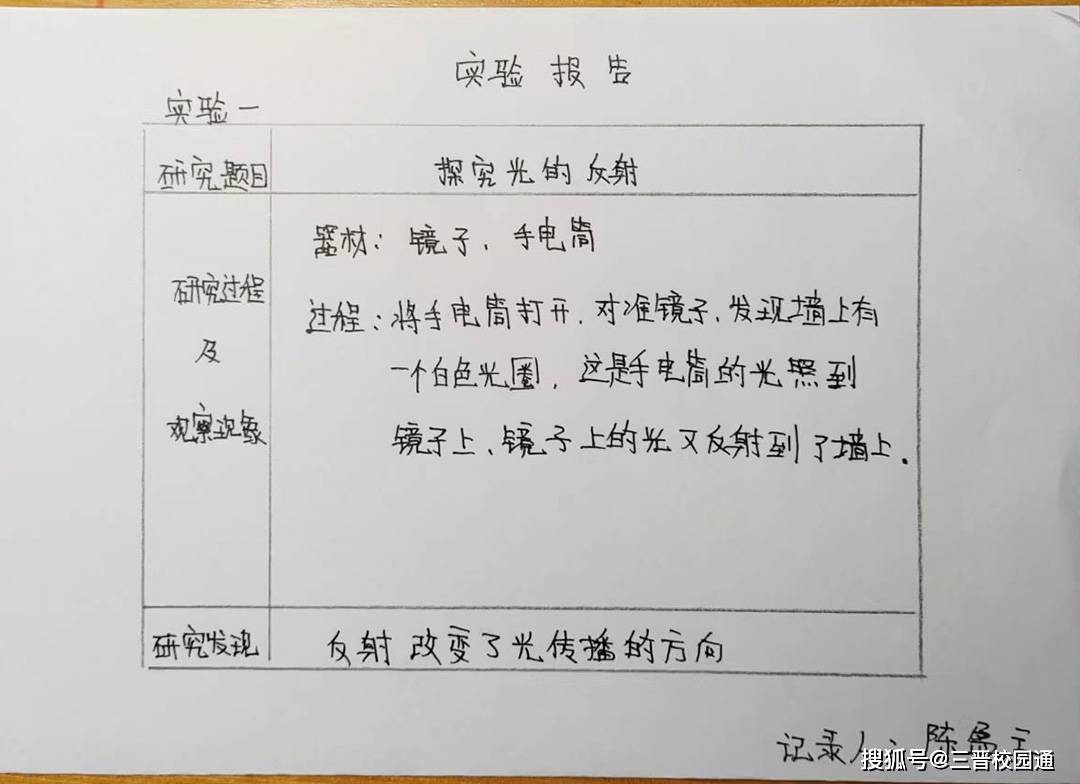 实验报告
实验一
研究题目
探究光的反射
研究过程
及
观察现象
器材：镜子、手电筒
过程：将手电筒打开，对准镜子，发现墙上有
一个白色光圈，这是手电筒的光照到
镜子上、镜子上的光又反射到了墙上．
研究发现
反射改变了光传播的方向
记录人：陈
搜狐号@三晋校园通